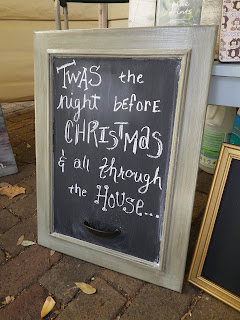 TWAS the
night before
CHRISTMAS
& all through
the HOUSE...